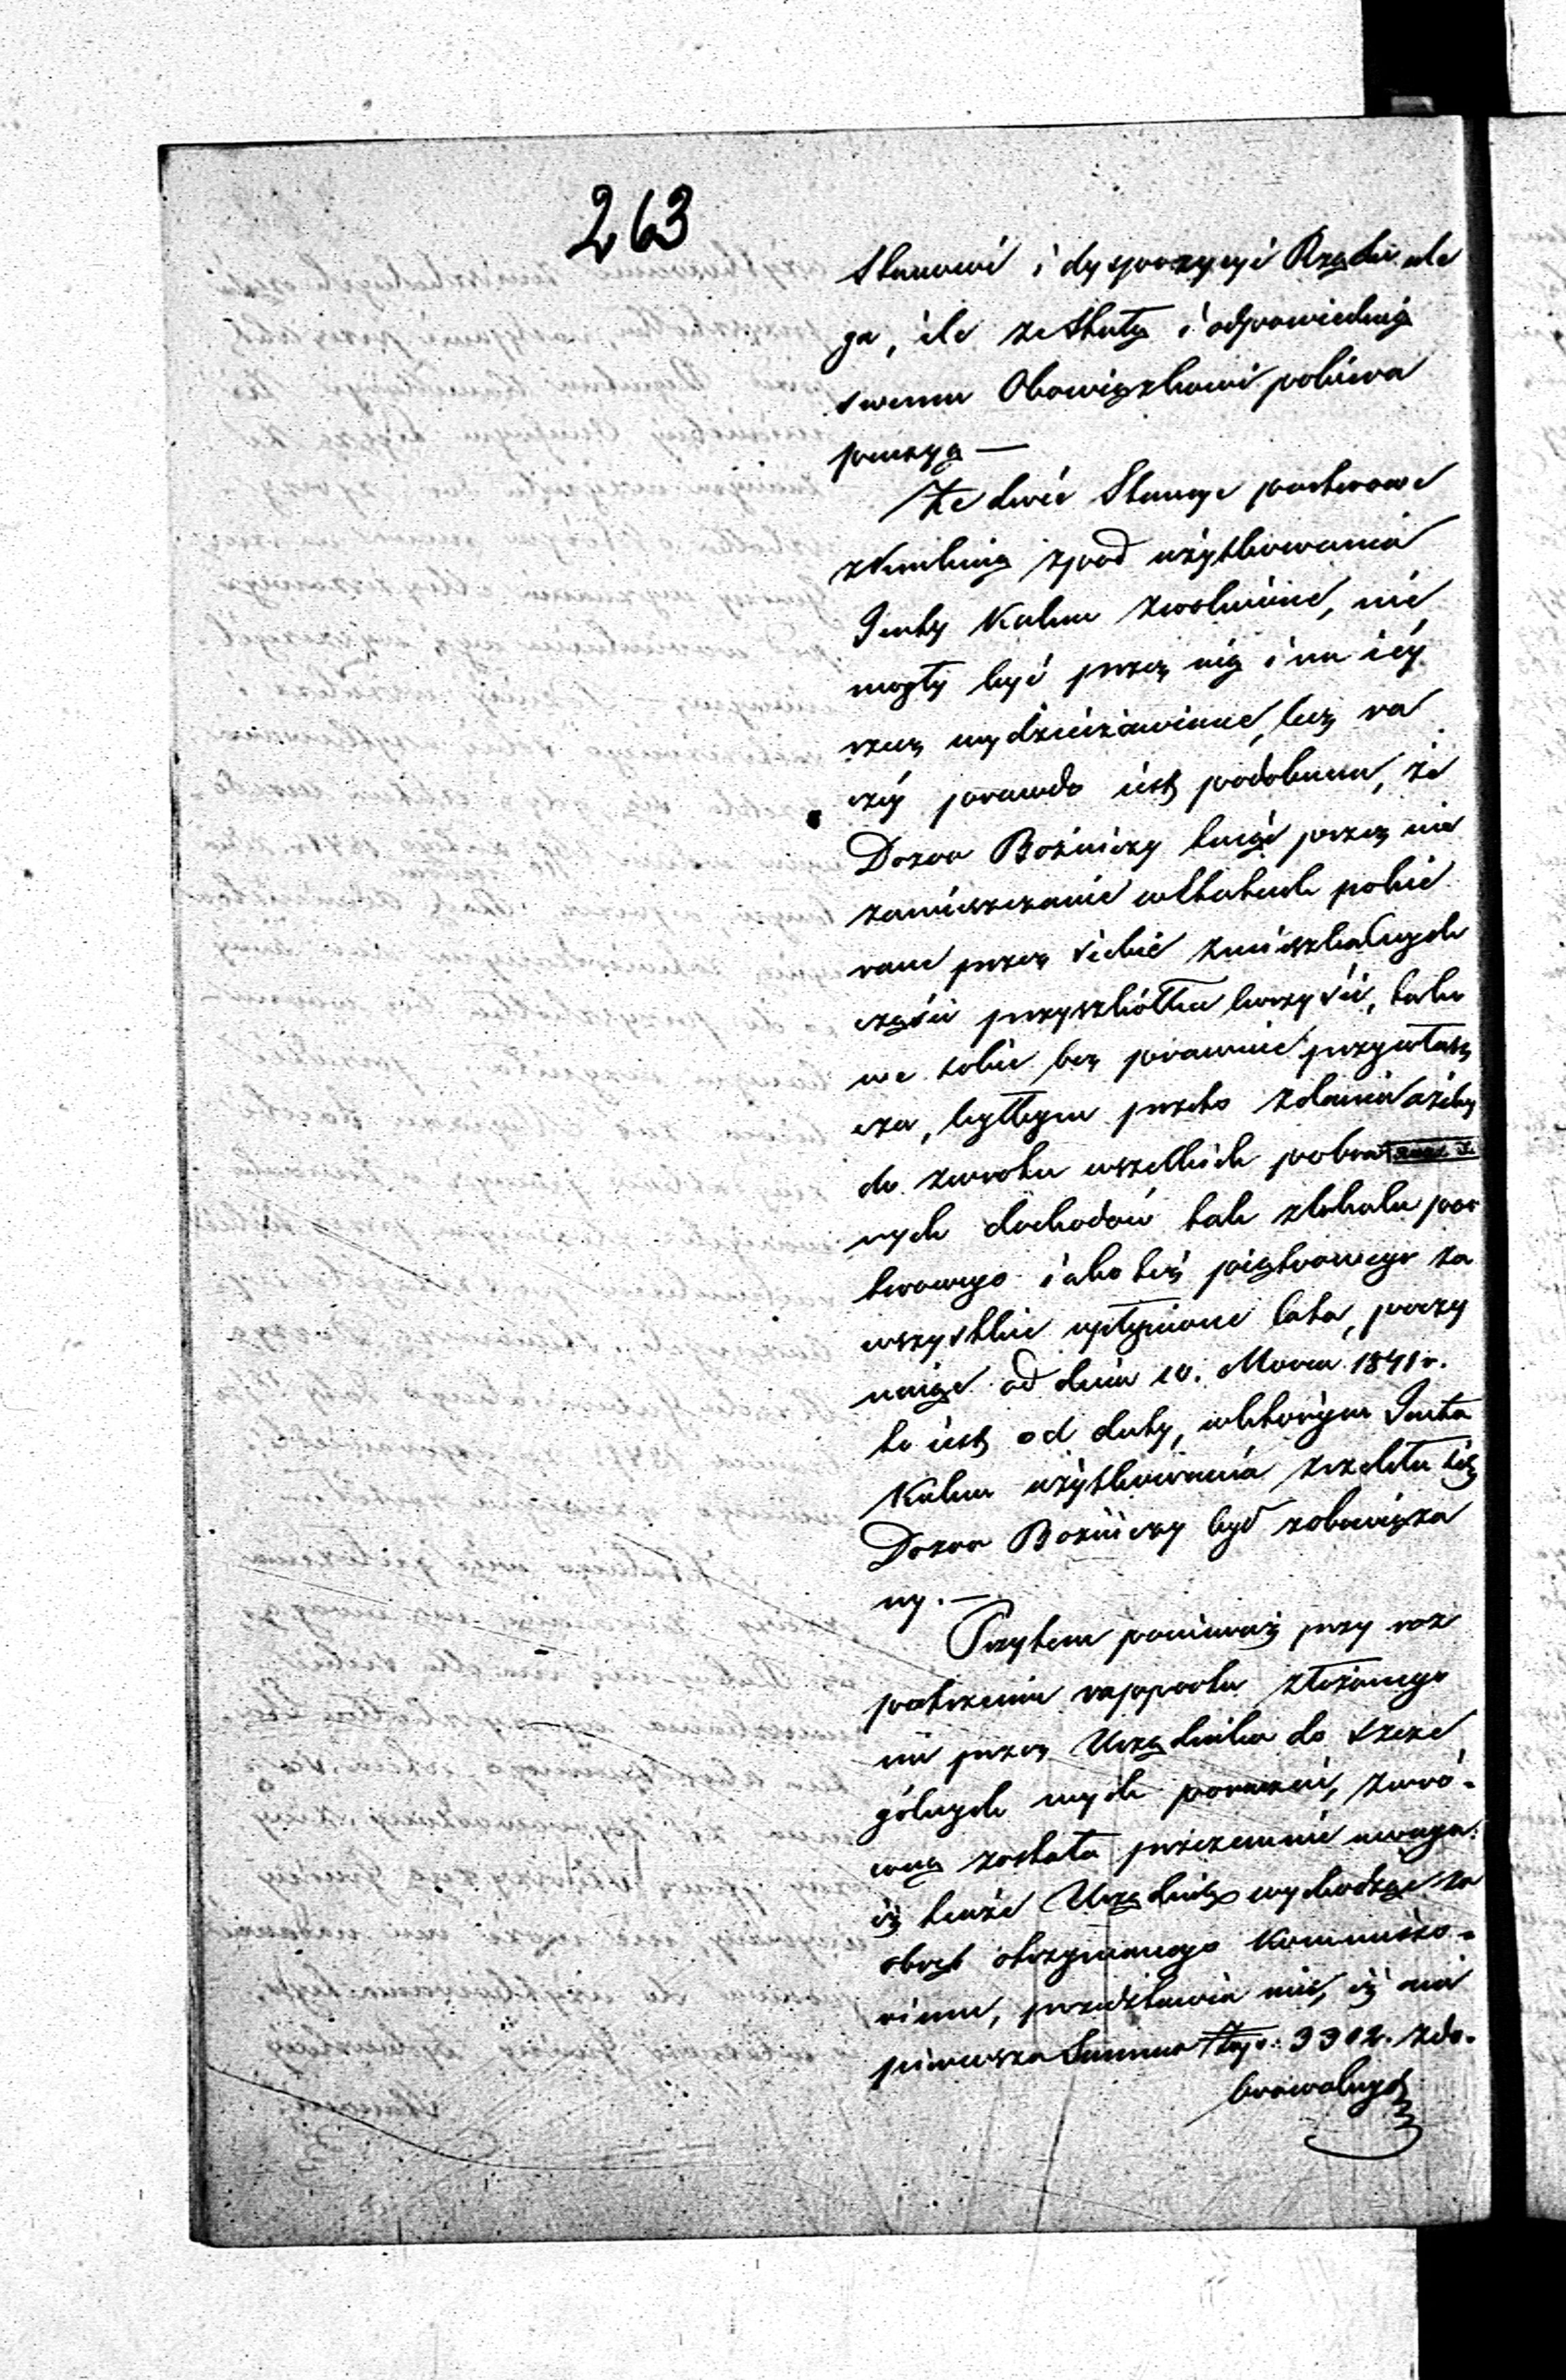 263
Stanowi i dyspozycyi Rządu ule
ga, ile ze Staty i odpowiednią
swemu Obowiązkowi pobiera
pensyą —
Że dwie Stancye parterowe
z Kuchnią z pod użytkowania
Jenty Kahn zwolnione, nie
mogły być przez nią i na iéy
rzecz wydzierżawione, lecz ra
czéy prawdo iest podobném, że
Dozor Bożniczy ciągle przez nie
zamieszczanie w Etatach pobie
rane przez siebie z mieszkalnych
części przyszkółka korzyści, tako
we sobie bez prawnie przywłasz
cza, byłbym przeto zdania ażeby
do zwrotu wszelkich pobra
nych dochodów tak z lokalu par
terowego iako też piętrowego za
wszystkie upłynione lata, poczy
naiąc od dnia 10. Marca 1841 r.
to iest od daty, w którym Jenta
Kahn użytkowania zrzekła się
Dozor Bożniczy był zobowiąza
ny. —
Przytem ponieważ przy roz
patrzeniu rapportu złożonego
mi przez Urzędnika do szcze
gólnych mych poruczeń, zwró-
coną została przezemnie uwaga.
iż tenże Urzędnik wychodząc za
obręb otrzymanego Kommisso-
rium, przedstawia mi, iż na
pierwsza Summa 3302. zdo.
browolnych